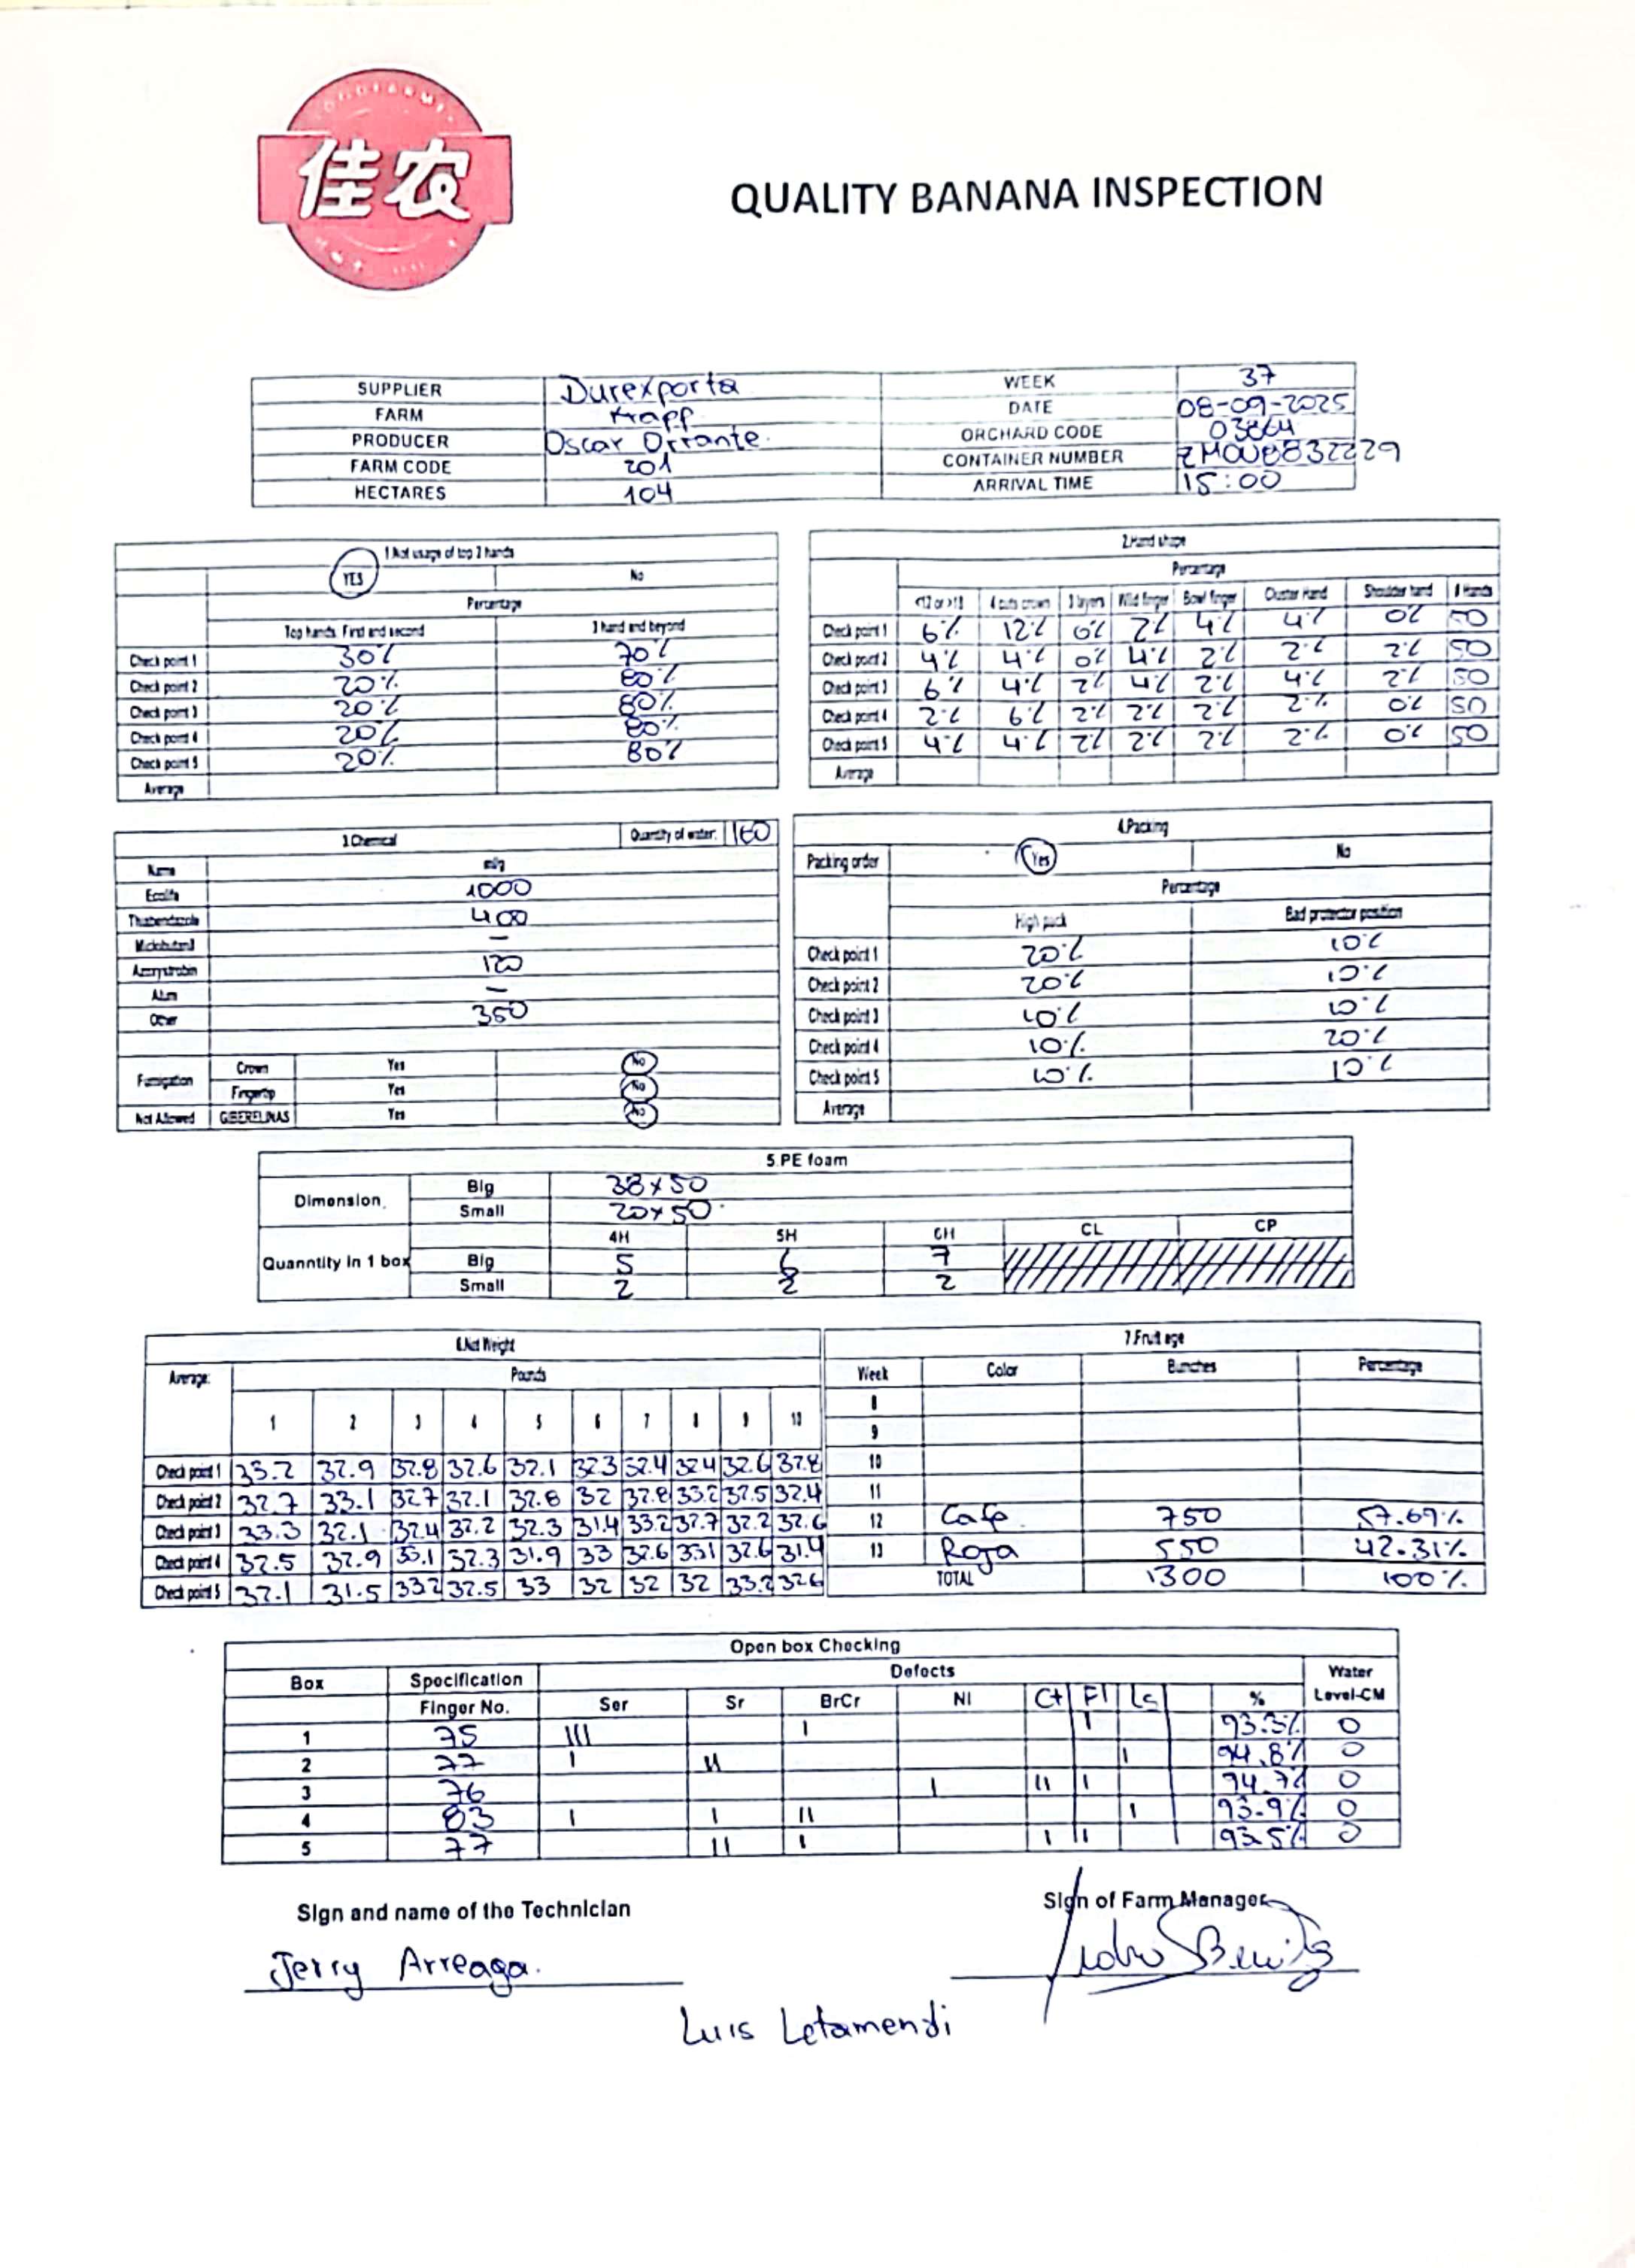 佳农
QUALITY BANANA INSPECTION
SUPPLIER Durexporta WEEK 37
FARM DATE 08-09-2025
PRODUCER Oscar Orrante. ORCHARD CODE 03864
FARM CODE 201 CONTAINER NUMBER
HECTARES 104 ARRIVAL TIME 15:00
1.Not usage of top 2 hands
YES No
Percentage
Top hands. First and second 3 hand and beyond
Check point 1 30% 70%
Check point 2 20% 80%
Check point 3 20% 80%
Check point 4 20% 80%
Check point 5 20% 80%
Average
2.Hand shape
Percentage
4 cuts crown 3 layers Wild finger Bowl finger Cluster Hand Shoulder hand # Hands
Check point 1 6% 12% 0% 2% 4% 4% 0% 50
Check point 2 4% 4% 0% 4% 2% 2% 2% 50
Check point 3 6% 4% 2% 4% 2% 4% 2% 50
Check point 4 2% 6% 2% 2% 2% 2% 0% 50
Check point 5 4% 4% 2% 2% 2% 2% 0% 50
Average
3.Chemical Quantity of water: 160
Name
1000
Thiabendazole 400
Miclobutanil -
Azoxystrobin 120
Alum -
Other 350
Fumigation Crown Yes No
Fingertip Yes No
Not Allowed GIBERELINAS Yes No
4.Packing
Packing order Yes No
Percentage
High pack Bad protector position
Check point 1 20% 10%
Check point 2 20% 10%
Check point 3 10% 10%
Check point 4 10% 20%
Check point 5 10% 10%
Average
5.PE foam
Dimension. Big 38x50
Small 20x50
4H 5H 6H CL CP
Quanntity in 1 box Big 5 6 7
Small 2 2 2
6.Net Weight
Average: Pounds
1 2 3 4 5 6 7 8 9 10
Check point 1 33.2 32.9 32.8 32.6 32.1 32.3 32.4 32.4 32.6 32.8
Check point 2 32.7 33.1 32.7 32.1 32.8 32 32.8 33.2 32.5 32.4
Check point 3 33.3 32.1 32.4 32.2 32.3 31.4 33.2 32.7 32.2 32.6
Check point 4 32.5 32.9 33.1 32.3 31.9 33 32.6 33.1 32.6 31.4
Check point 5 32.1 31.5 33.2 32.5 33 32 32 32 33.2 32.6
7.Fruit age
Week Color Bunches Percentage
8
9
10
11
12 Cafe 750 57.69%
13 Roja 550 42.31%
TOTAL 1300 100%
Open box Checking
Box Specification Defects Water
Finger No. Ser Sr BrCr NI Ct Fl Ls % Level-CM
1 75 III I I 93.3% 0
2 77 I II I 94.8% 0
3 76 I II I 94.7% 0
4 83 I I II I 93.9% 0
5 77 II I I II 93.5% 0
Sign and name of the Technician Sign of Farm Manager
Jerry Arreaga.
Luis Letamendi